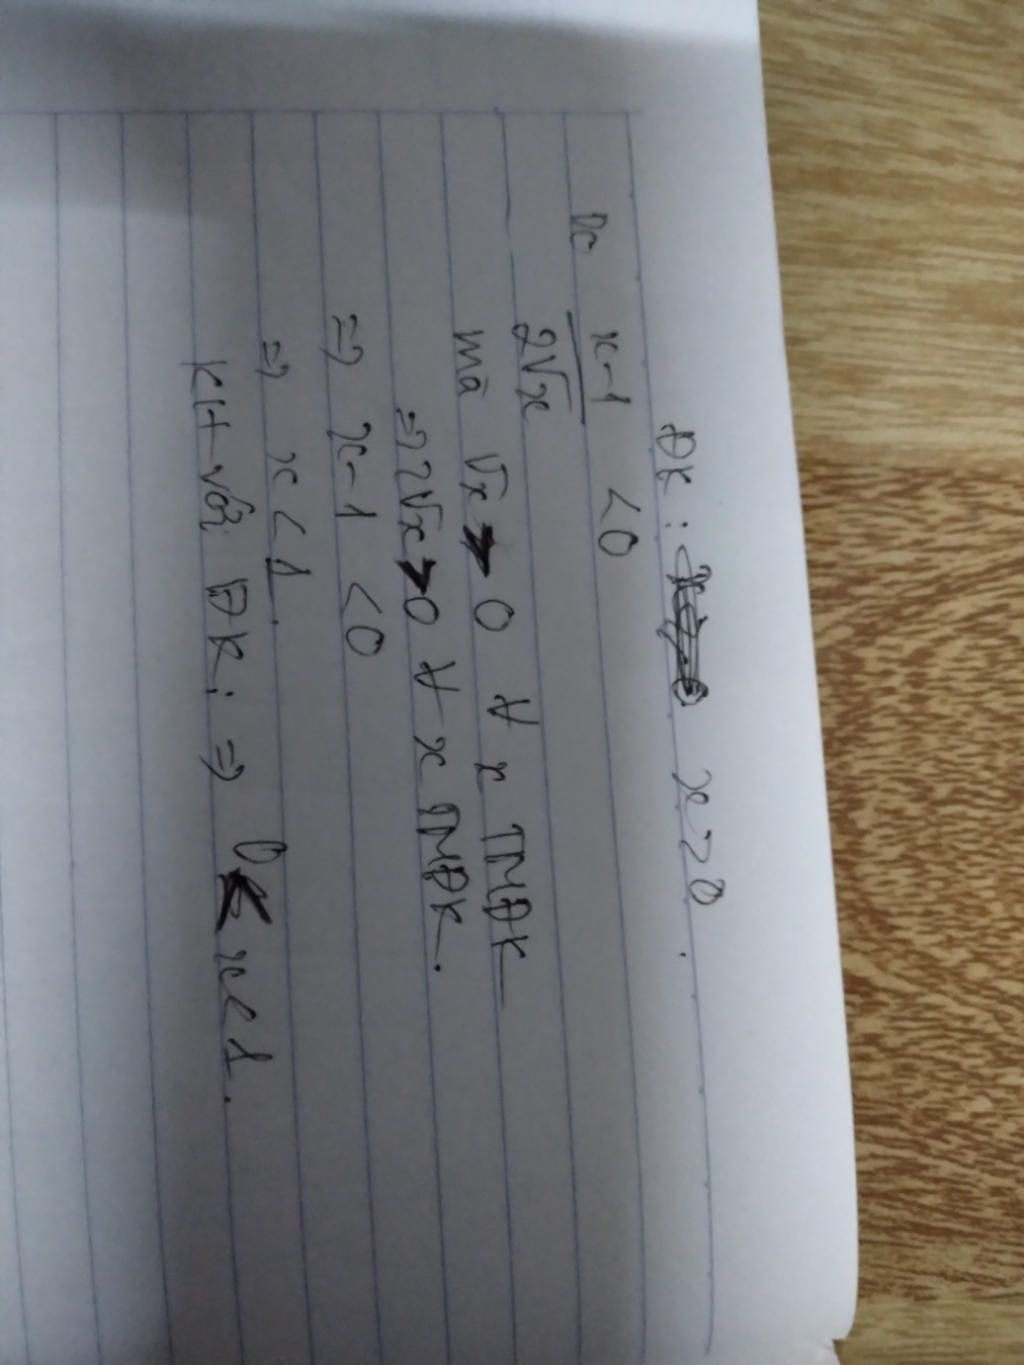 ĐK: x > 0.
Dc x-1
—— < 0
2√x
mà √x > 0 ∀ x TMĐK
=> 2√x > 0 ∀ x TMĐK.
=> x-1 < 0
=> x < 1.
KH với ĐK: => 0 < x < 1.